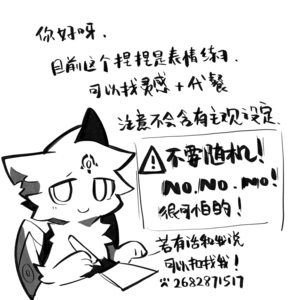 你好呀.
目前这个捏捏是表情练习.
可以找灵感+代餐
注意不会含有主观设定
不要随机!
NO.NO.NO!
很可怕的!
若有话和我说
可以扣找我!
2682871517